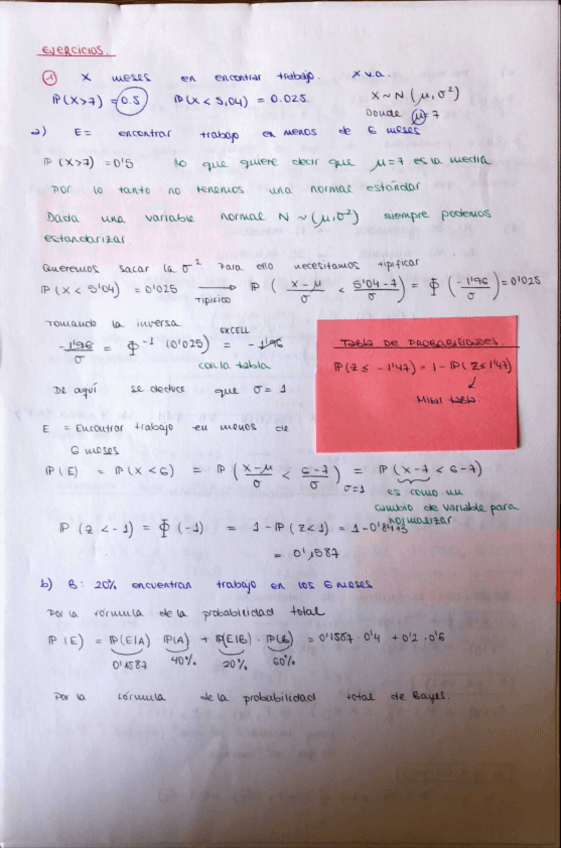 EJERCICIOS.
① X meses en encontrar trabajo. X v.a.
P(X>7) = 0.5 P(X < 5,04) = 0.025. X ~ N(μ, σ²)
Donde μ=7
a) E = encontrar trabajo en menos de 6 meses
P(X>7) = 0'5 lo que quiere decir que μ=7 es la media
Por lo tanto no tenemos una normal estándar
Dada una variable normal N ~ (μ, σ²) siempre podemos
estandarizar.
Queremos sacar la σ² Para ello necesitamos tipificar
P(X < 5'04) = 0'025 → TIPIFICO P( X-μ / σ < 5'04-7 / σ ) = Φ( -1'96 / σ ) = 0'025
Tomando la inversa
-1'96 / σ = Φ⁻¹ (0'025) = -1'96
EXCELL
con la tabla
De aquí se deduce que σ = 1
TABLA DE PROBABILIDADES
P(Z ≤ -1'47) = 1 - P(Z ≤ 1'47)
Mirar tabla.
E = Encontrar trabajo en menos de
6 meses
P(E) = P(X < 6) = P( X-μ / σ < 6-7 / σ ) = P(X-7 < 6-7)
σ=1
es como un
cambio de variable para
normalizar
P(Z < -1) = Φ(-1) = 1 - P(Z<1) = 1 - 0'8413
= 0'1587
b) B: 20% encuentran trabajo en los 6 meses
Por la fórmula de la probabilidad total
P(E) = P(E|A) · P(A) + P(E|B) · P(B) = 0'1587 · 0'4 + 0'2 · 0'6
0'1587 40% 20% 60%
Por la fórmula de la probabilidad total de Bayes.